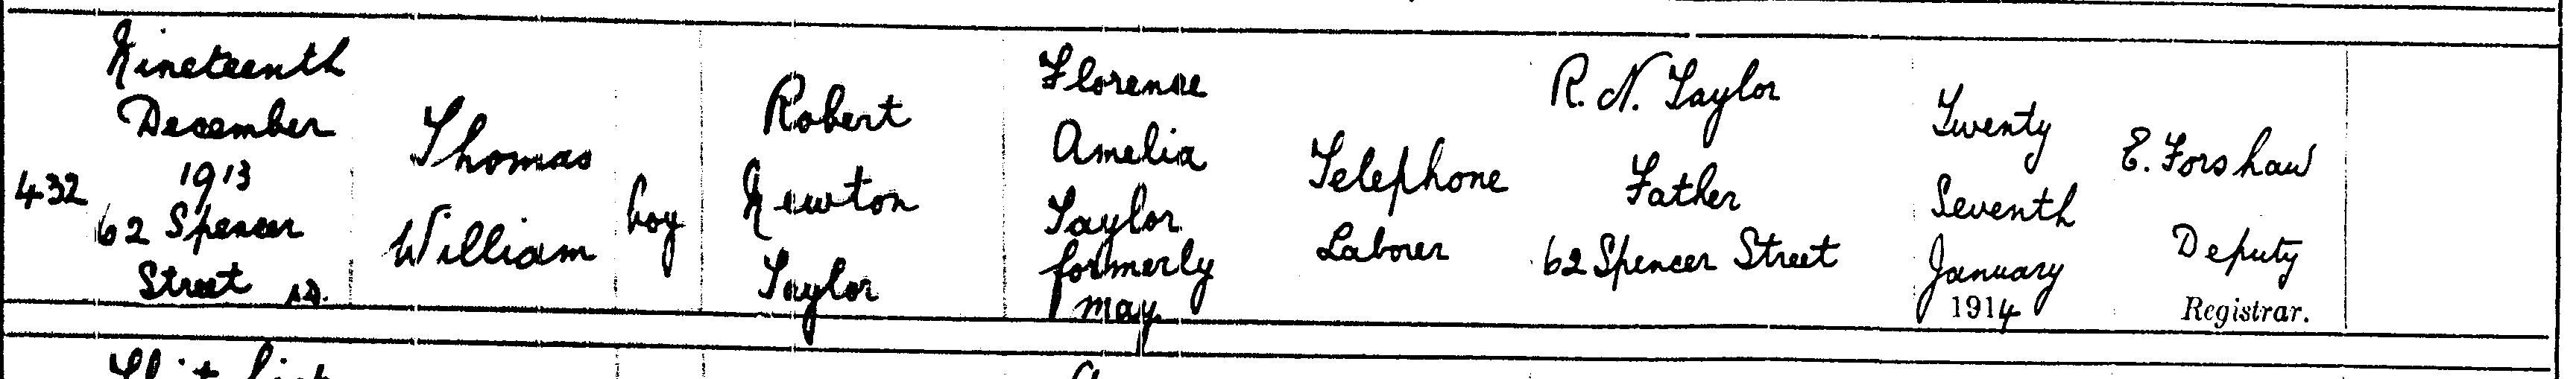 432
Nineteenth
December
1913
62 Spencer
Street S.D.
Thomas
William
boy
Robert
Newton
Taylor
Florence
Amelia
Taylor
formerly
May
Telephone
Laborer
R. N. Taylor
Father
62 Spencer Street
Twenty
Seventh
January
1914
E. Forshaw
Deputy
Registrar.